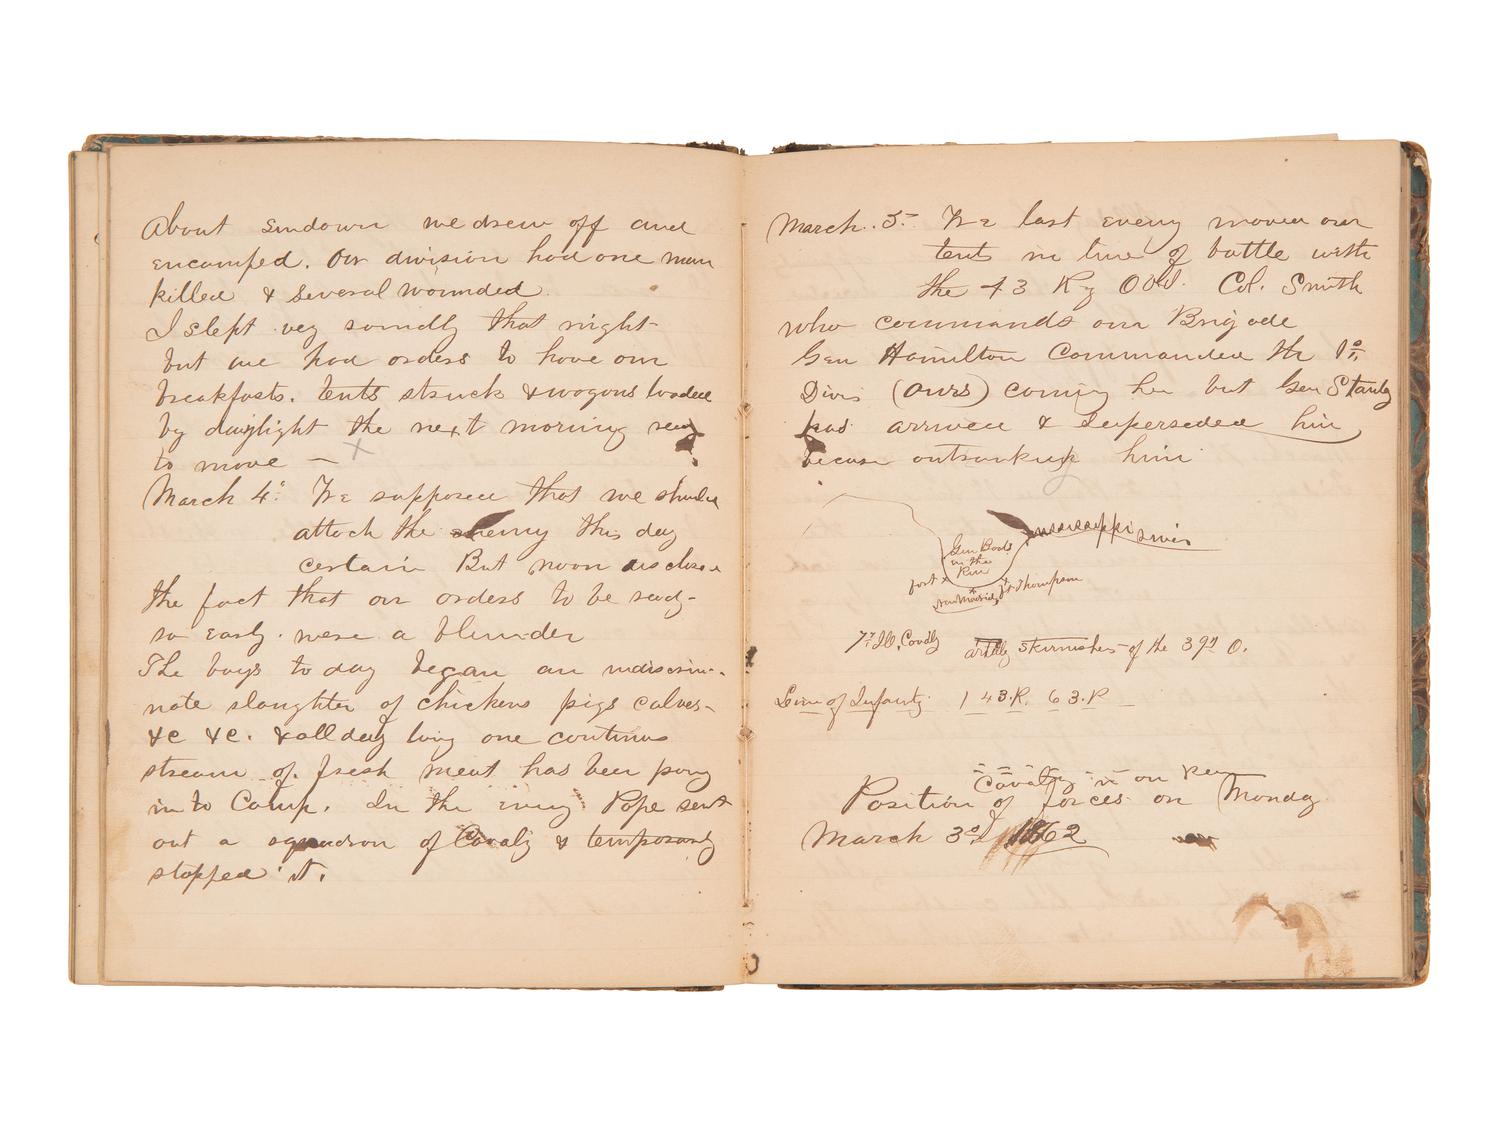 About sundown we drew off and
encamped. Our division had one man
killed & several wounded.
I slept very soundly that night-
but we had orders to have our
breakfasts. tents struck & wagons loaded
by daylight the next morning ready
to move —
March 4th We supposed that we should
attack the enemy this day
certain But noon disclosed
the fact that our orders to be ready-
so early. were a blunder
The boys to day began an indiscrimi-
nate slaughter of chickens pigs calves-
&c &c. & all day long one continus
stream of fresh meat has been pong
in to Camp. In the eveng Pope sent
out a squadron of Cavaly & temporarly
stopped it.
March. 5- We last eveng moved our
tents in line of battle with
the 43 Reg O Vol. Col. Smith
who commands our Brigade
Gen Hamilton Commanded the 1st
Divis (ours) coming her but Gen Stanley
has arrived & superseded him
because outranking him
Mississippi river
Gen Boats
in the
Riv
fort x
New Madrid
ft Thompson
7th Ill. Cavaly artilly skirmishes - of the 39th O.
Line of Infantry. 1 43. R. 63. R
Cavalry in on Rear
Position of forces on Monday
March 3d 1862